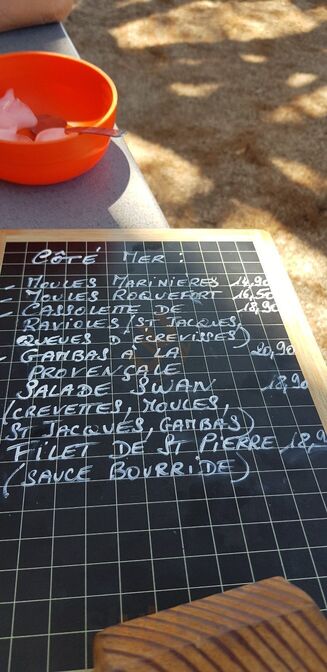 CÔTÉ MER :
- MOULES MARINIERES 14,90
- MOULES ROQUEFORT 16,50
- CASSOLETTE DE 18,90
RAVIOLES (ST JACQUES,
QUEUES D ECREVISSES)
- GAMBAS A LA 20,90
PROVENÇALE
SALADE SWAN 18,90
(CREVETTES, MOULES,
ST JACQUES, GAMBAS)
FILET DE ST PIERRE 18,9
(SAUCE BOURRIDE)